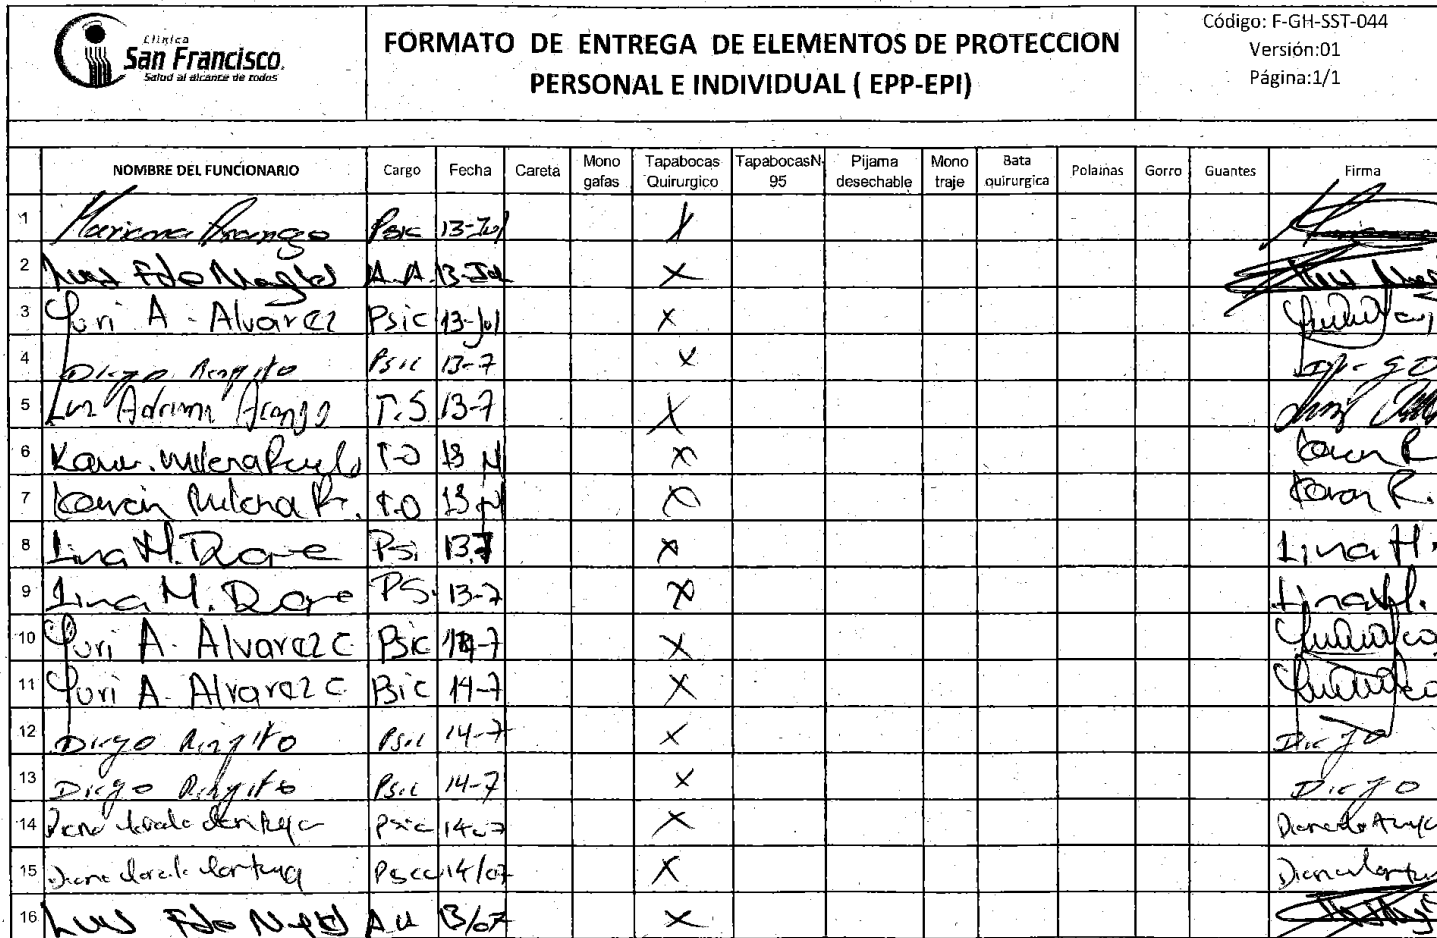 Clínica
San Francisco.
Salud al alcance de todos
FORMATO DE ENTREGA DE ELEMENTOS DE PROTECCION
PERSONAL E INDIVIDUAL ( EPP-EPI)
Código: F-GH-SST-044
Versión:01
Página:1/1
NOMBRE DEL FUNCIONARIO Cargo Fecha Careta Mono gafas Tapabocas Quirurgico TapabocasN-95 Pijama desechable Mono traje Bata quirurgica Polainas Gorro Guantes Firma
1 Mariana Arango Psic 13-Jul X
2 Luis Fdo A.A. 13-Jul X
3 Yuri A - Alvarez Psic 13-Jul X
4 Diego Psic 13-7 X Diego
5 Luz Adriana Arango T.S 13-7 X Luz
6 Milena T-O 13 X Karen R
7 Karen Milena R. T.O 13 X Karen R.
8 Lina M. Psi 13-7 X Lina M.
9 Lina M. PS. 13-7 X Lina M.
10 Yuri A. Alvarez C Psic 14-7 X
11 Yuri A. Alvarez C Psic 14-7 X
12 Diego Psic 14-7 X Diego
13 Diego Psic 14-7 X Diego
14 Psic 14-07 X
15 14/07 X
16 Luis Fdo 13/07 X